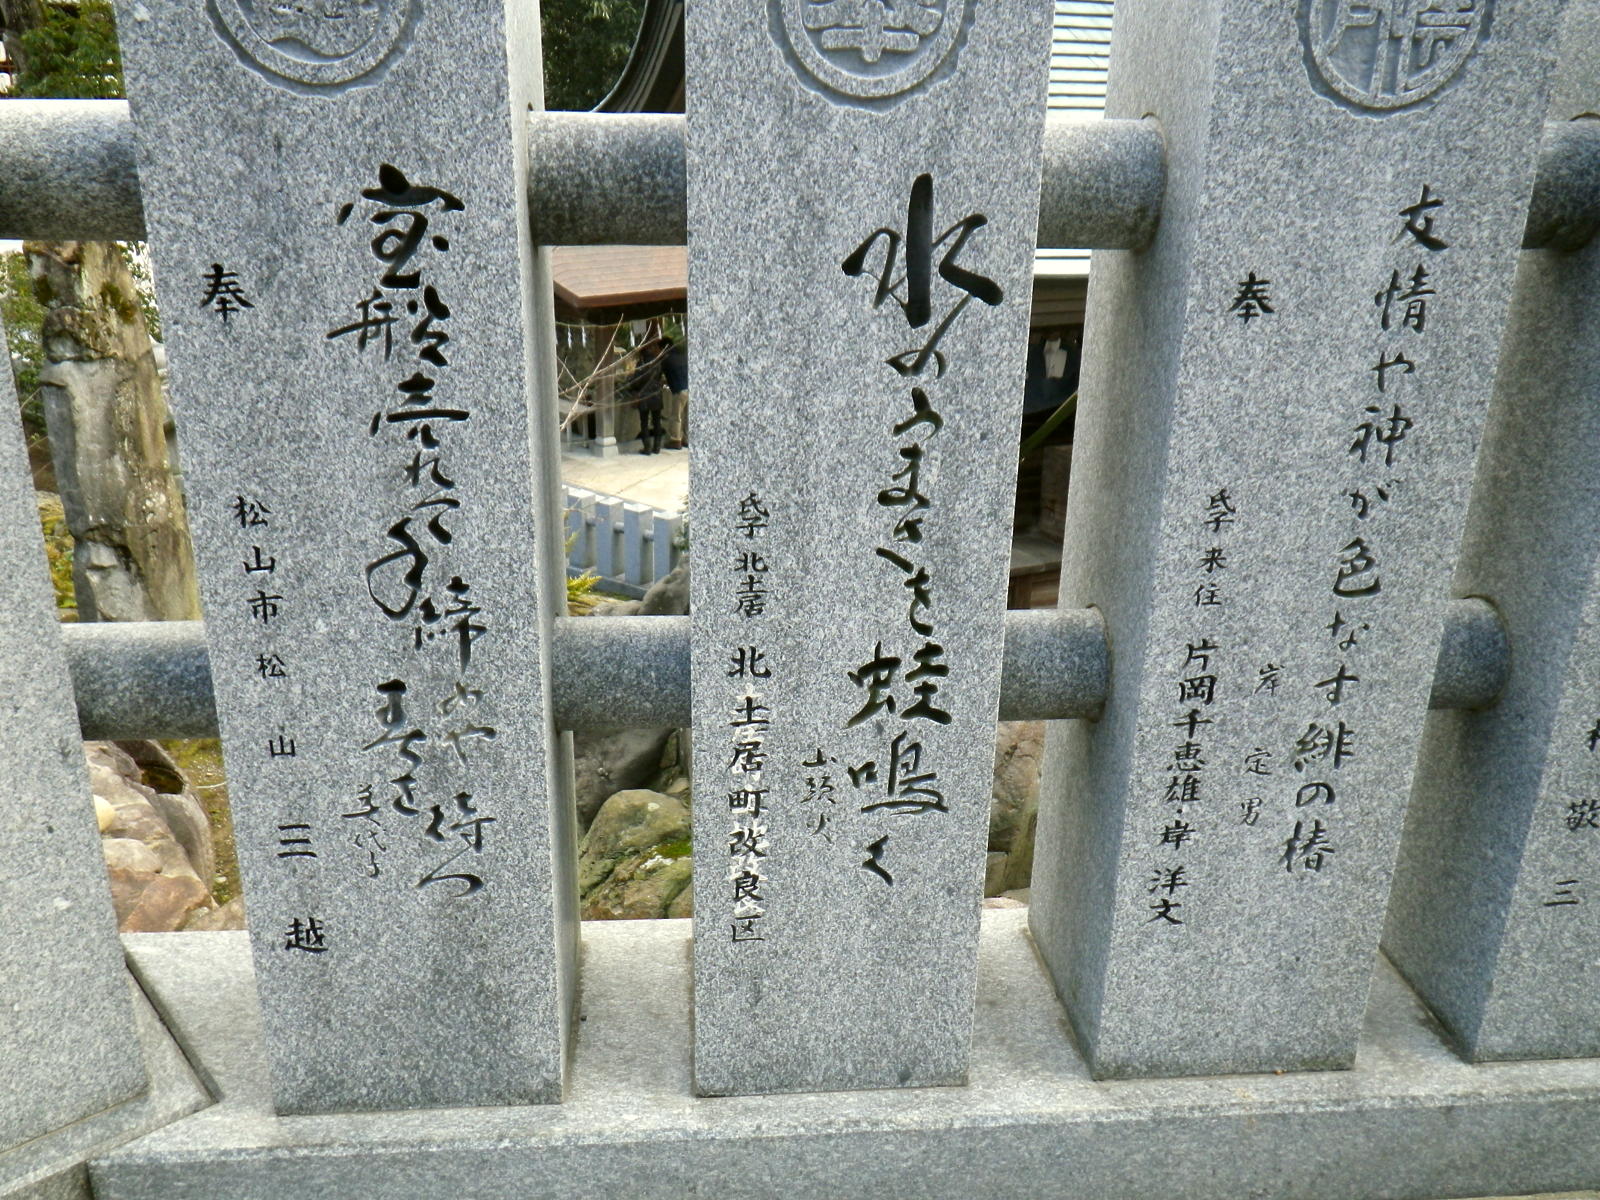 友情や神が色なす緋の椿
岸 定男
奉
氏子 来住 片岡千恵雄・岸 洋文
水のうまさを蛙鳴く
山頭火
氏子 北土居 北土居町改良区
宝船売れ
締めや待つ
奉
松山市 松山三越
敬三